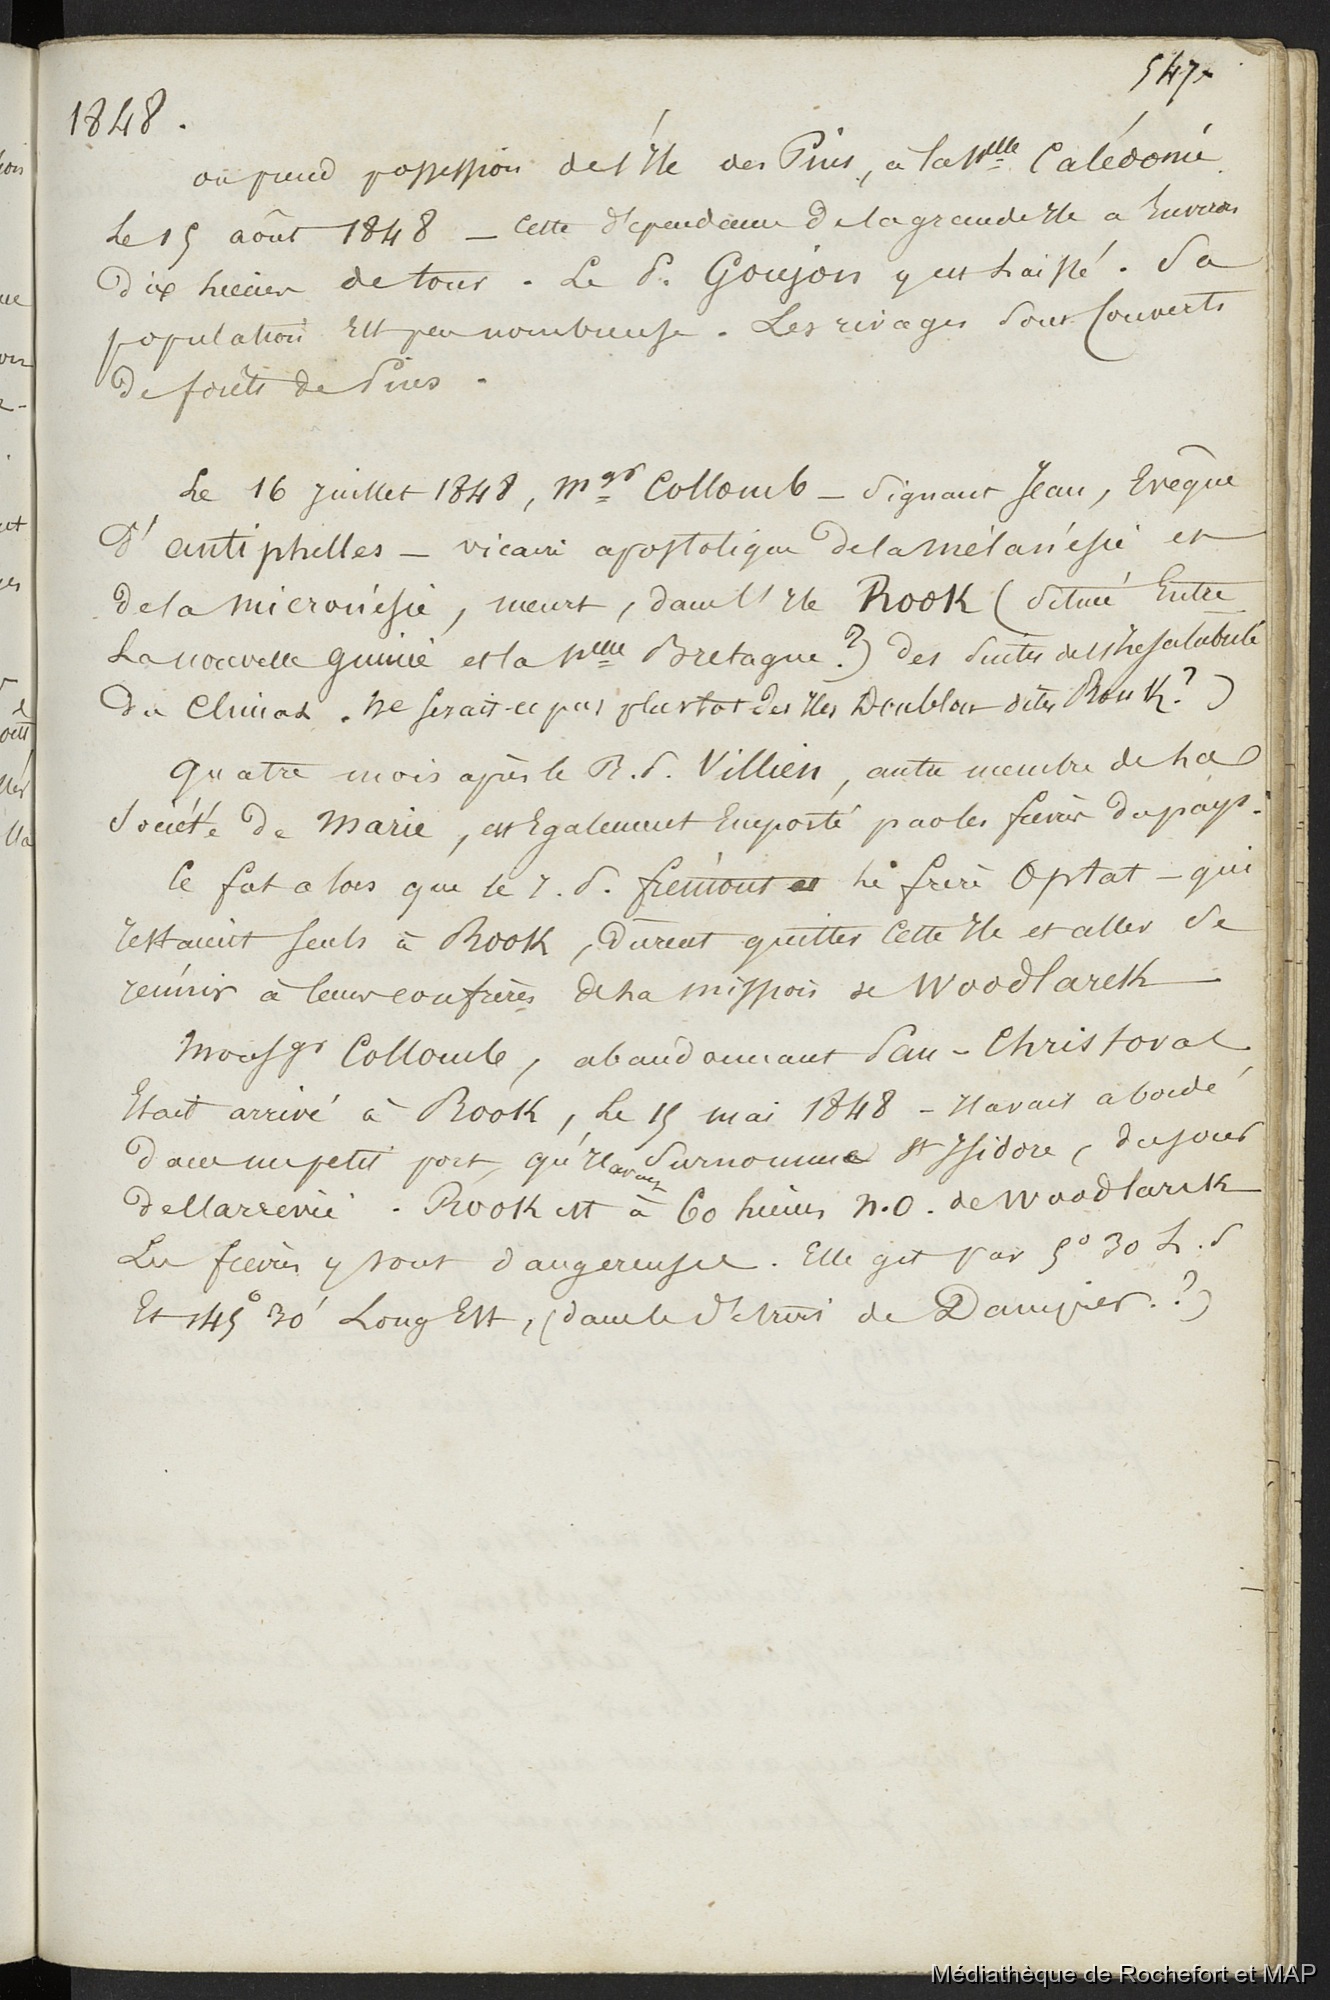 547.
1848.
on prend possession de l'Ile des Pins, à la Nlle Calédonie
le 15 août 1848 – Cette dépendance de la grande Ile a Environ
dix lieues de tour. Le P. Goujon y est laissé. Sa
population Est peu nombreuse. Les rivages sont Couverts
de forêts de Pins.
Le 16 Juillet 1848, Mgr Collomb – Signant Jean, Evêque
d'antiphelles – vicaire apostolique de la mélanésie et
de la micronésie, meurt, dans l'Ile Rook (située Entre
La nouvelle guinée et la Nlle Bretagne?) des suites de l'Insalubrité
du Climat. Ne serait-ce pas plustot des Iles Doublon dites Rouk?)
Quatre mois après le R.P. Villien, autre membre de la
Société de Marie, est Egalement Emporté par les fièvres du pays.
Ce fut alors que le P. frémont et le frère Optat – qui
restaient seuls à Rook, durent quitter Cette Ile et aller se
réunir à leurs confrères de la mission de Woodlarck
Monsgr Collomb, abandonnant San-Christoval
Etait arrivé à Rook, le 15 mai 1848 – Il avait abordé
dans un petit port, qu'Il avait Surnommé St Isidore, du jour
de l'arrivée. Rook est à 60 lieues N.O. de Woodlarck
Les fièvres y sont dangereuses. Elle git par 5° 30 L.S
Et 145° 30' Long Est, (dans le détroit de Dampier.?)
Médiathèque de Rochefort et MAP